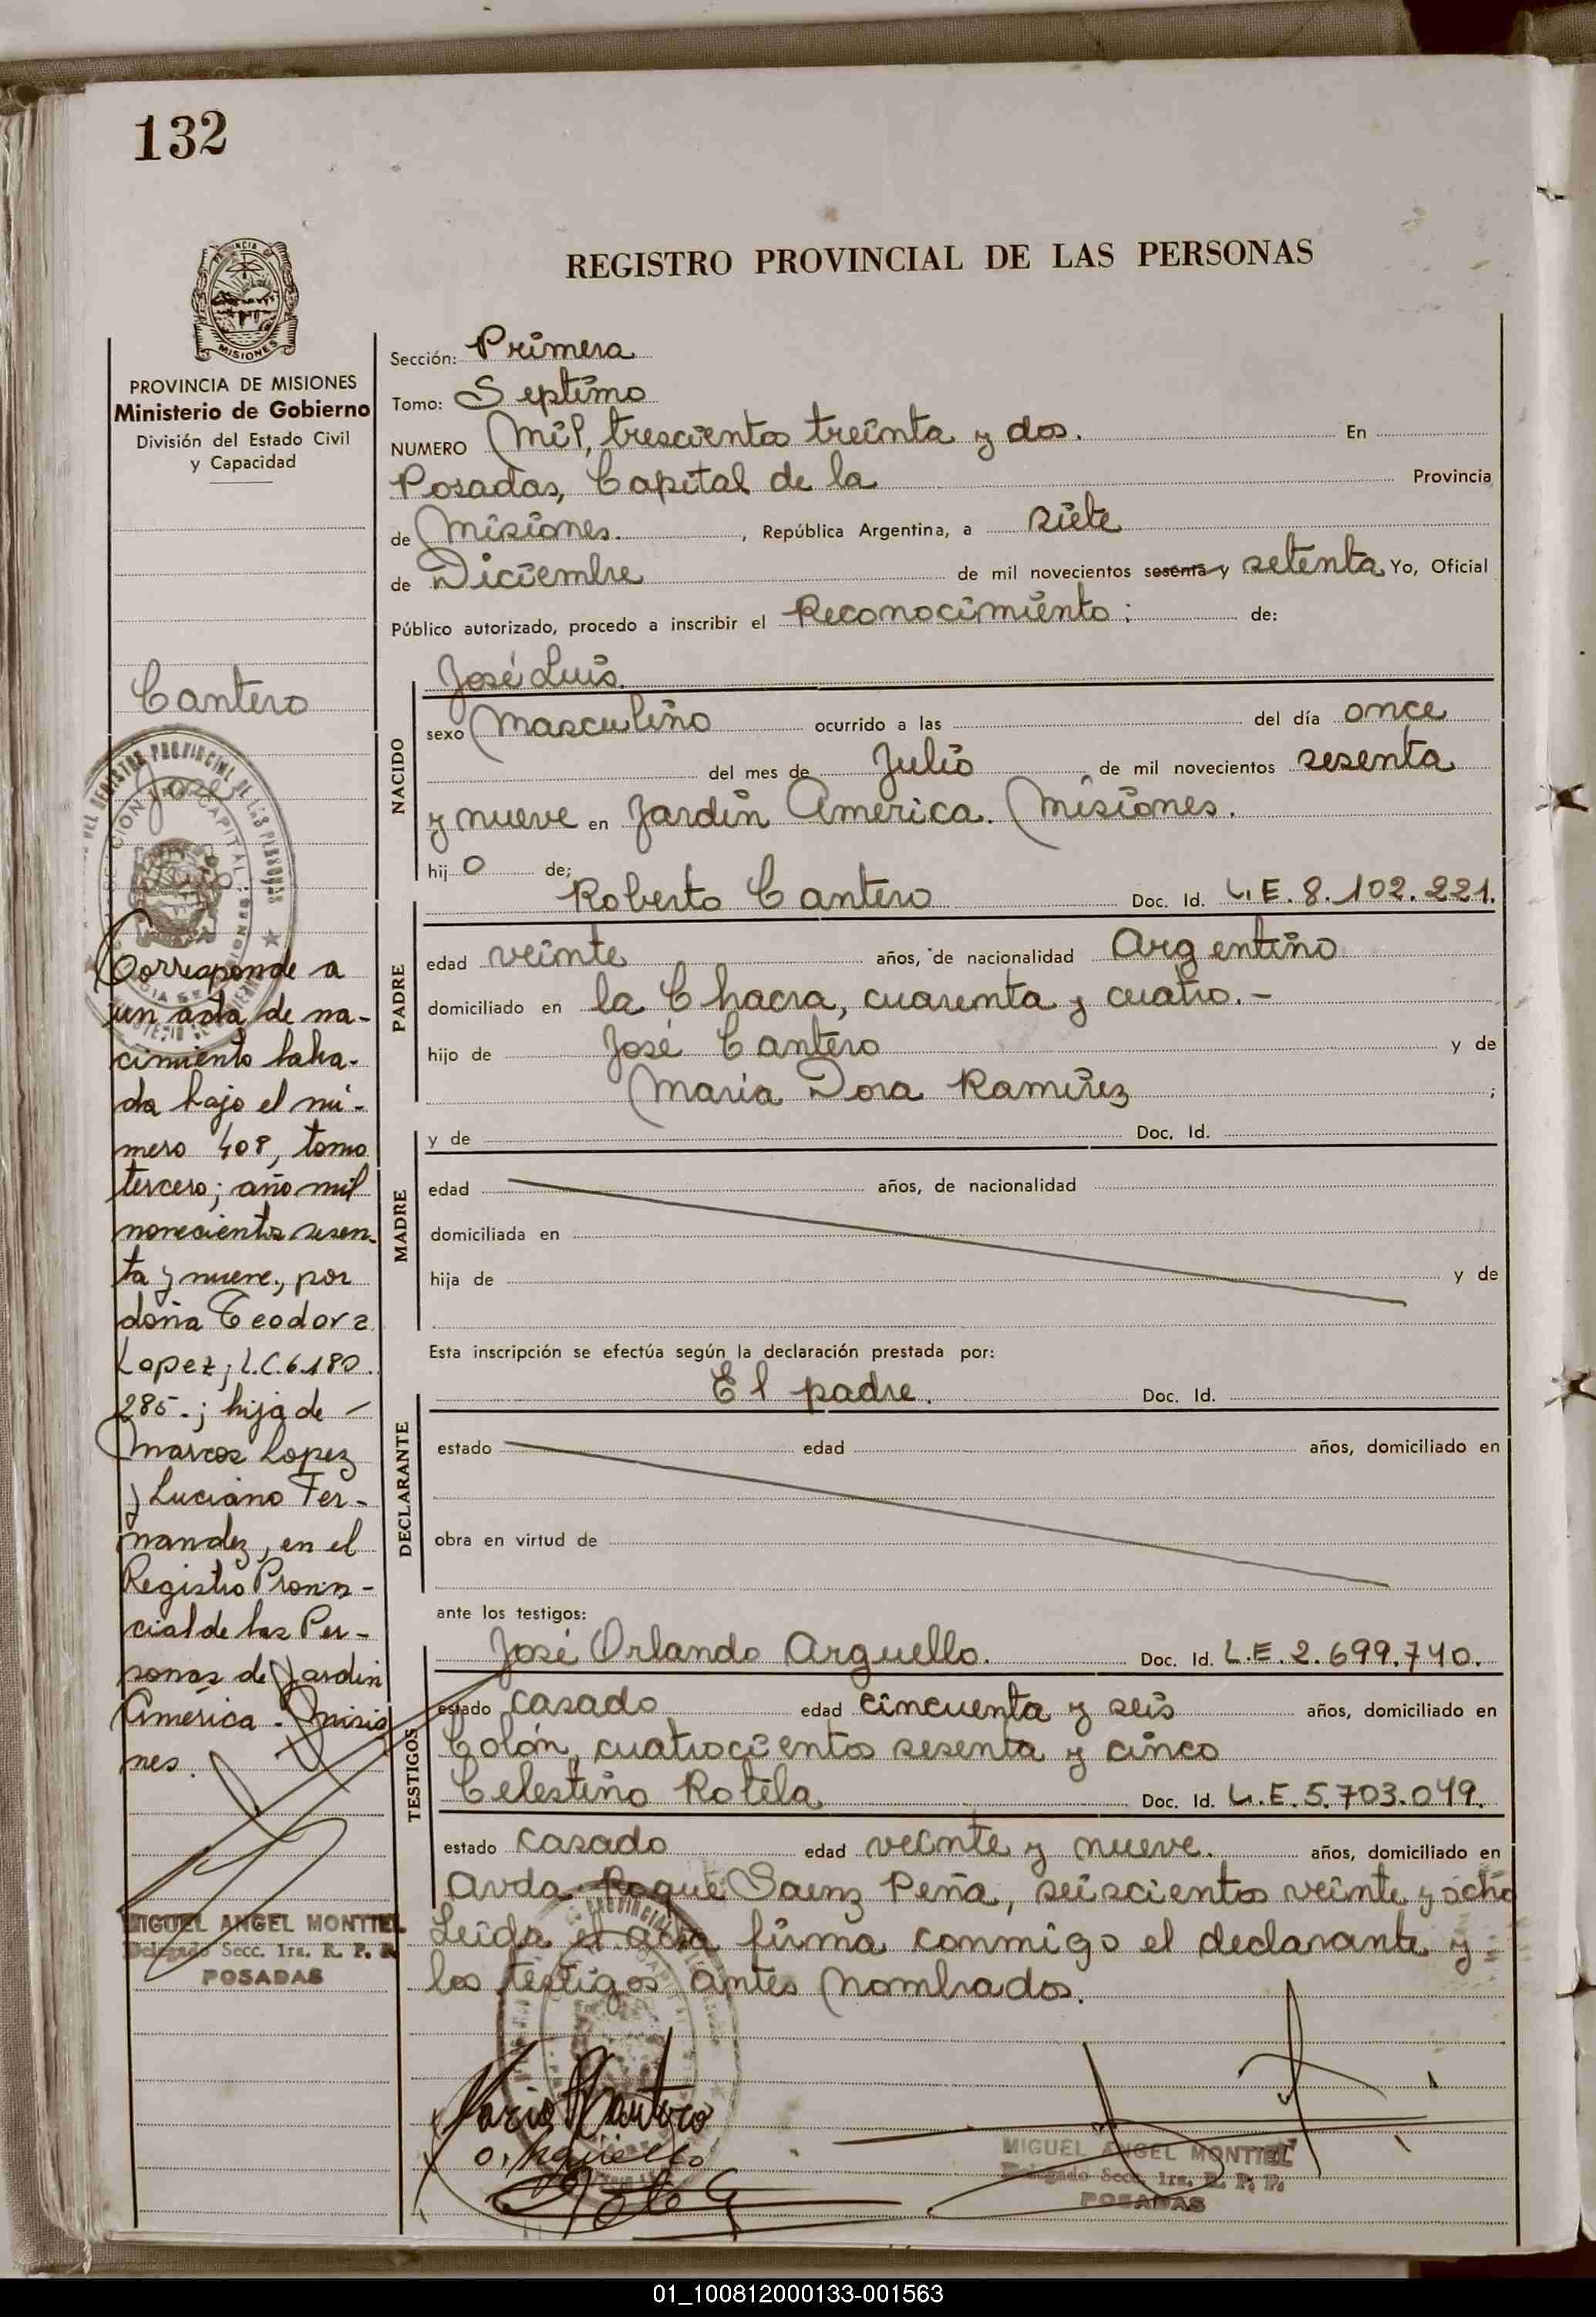 132
PROVINCIA DE MISIONES
Ministerio de Gobierno
División del Estado Civil
y Capacidad
Cantero
José
Corresponde a
un acta de na-
cimiento labra-
da bajo el nú-
mero 408, tomo
tercero; año mil
novecientos sesen-
ta y nueve, por
doña Teodora
Lopez; L.C. 6.180.
285.; hija de -
Marcos Lopez
y Luciano Fer-
nandez, en el
Registro Provin-
cial de las Per-
sonas de Jardin
América - Misio
nes.
MIGUEL ANGEL MONTIEL
Delegado Secc. 1ra. R. P. P.
POSADAS
REGISTRO PROVINCIAL DE LAS PERSONAS
Sección: Primera
Tomo: Septimo
NUMERO Mil, trescientos treinta y dos. En
Posadas, Capital de la Provincia
de Misiones. , República Argentina, a siete
de Diciembre de mil novecientos sesenta y setenta Yo, Oficial
Público autorizado, procedo a inscribir el Reconocimiento: de:
José Luis.
NACIDO
sexo Masculino ocurrido a las del día once
del mes de Julio de mil novecientos sesenta
y nueve en Jardin America. Misiones.
hij o de;
Roberto Cantero Doc. Id. L.E. 8.102.221.
PADRE
edad veinte años, de nacionalidad Argentino
domiciliado en la Chacra, cuarenta y cuatro.-
hijo de José Cantero y de
Maria Dora Ramirez ;
MADRE
y de Doc. Id.
edad años, de nacionalidad
domiciliada en
hija de y de
Esta inscripción se efectúa según la declaración prestada por:
El padre. Doc. Id.
DECLARANTE
estado edad años, domiciliado en
obra en virtud de
ante los testigos:
José Orlando Arguello. Doc. Id. L.E. 2.699.740.
TESTIGOS
estado casado edad cincuenta y seis años, domiciliado en
Colón, cuatrocientos sesenta y cinco
Celestino Rotela Doc. Id. L.E. 5.703.049.
estado casado edad veinte y nueve. años, domiciliado en
Avda. Roque Saenz Peña, seiscientos veinte y ocho
Leida el acta firma conmigo el declarante y
los testigos antes nombrados.
MIGUEL ANGEL MONTIEL
Delegado Secc. 1ra. R. P. P.
POSADAS
01_100812000133-001563